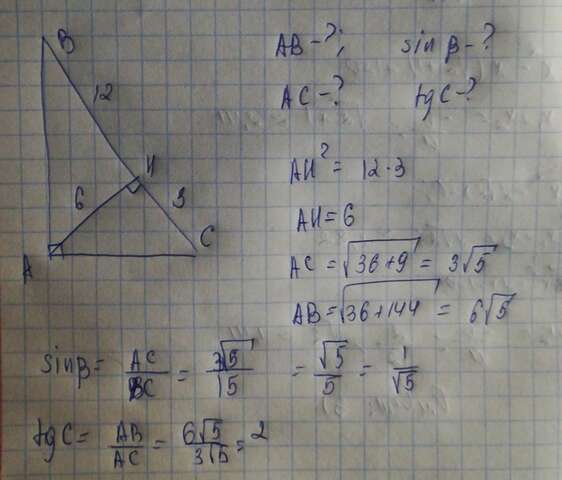 B
12
H
6
3
C
A
AB-?; sin β-?
AC-? tg C-?
AH² = 12·3
AH = 6
AC = √36+9 = 3√5
AB = √36+144 = 6√5
sin β = AC/BC = 3√5/15 = √5/5 = 1/√5
tg C = AB/AC = 6√5/3√5 = 2